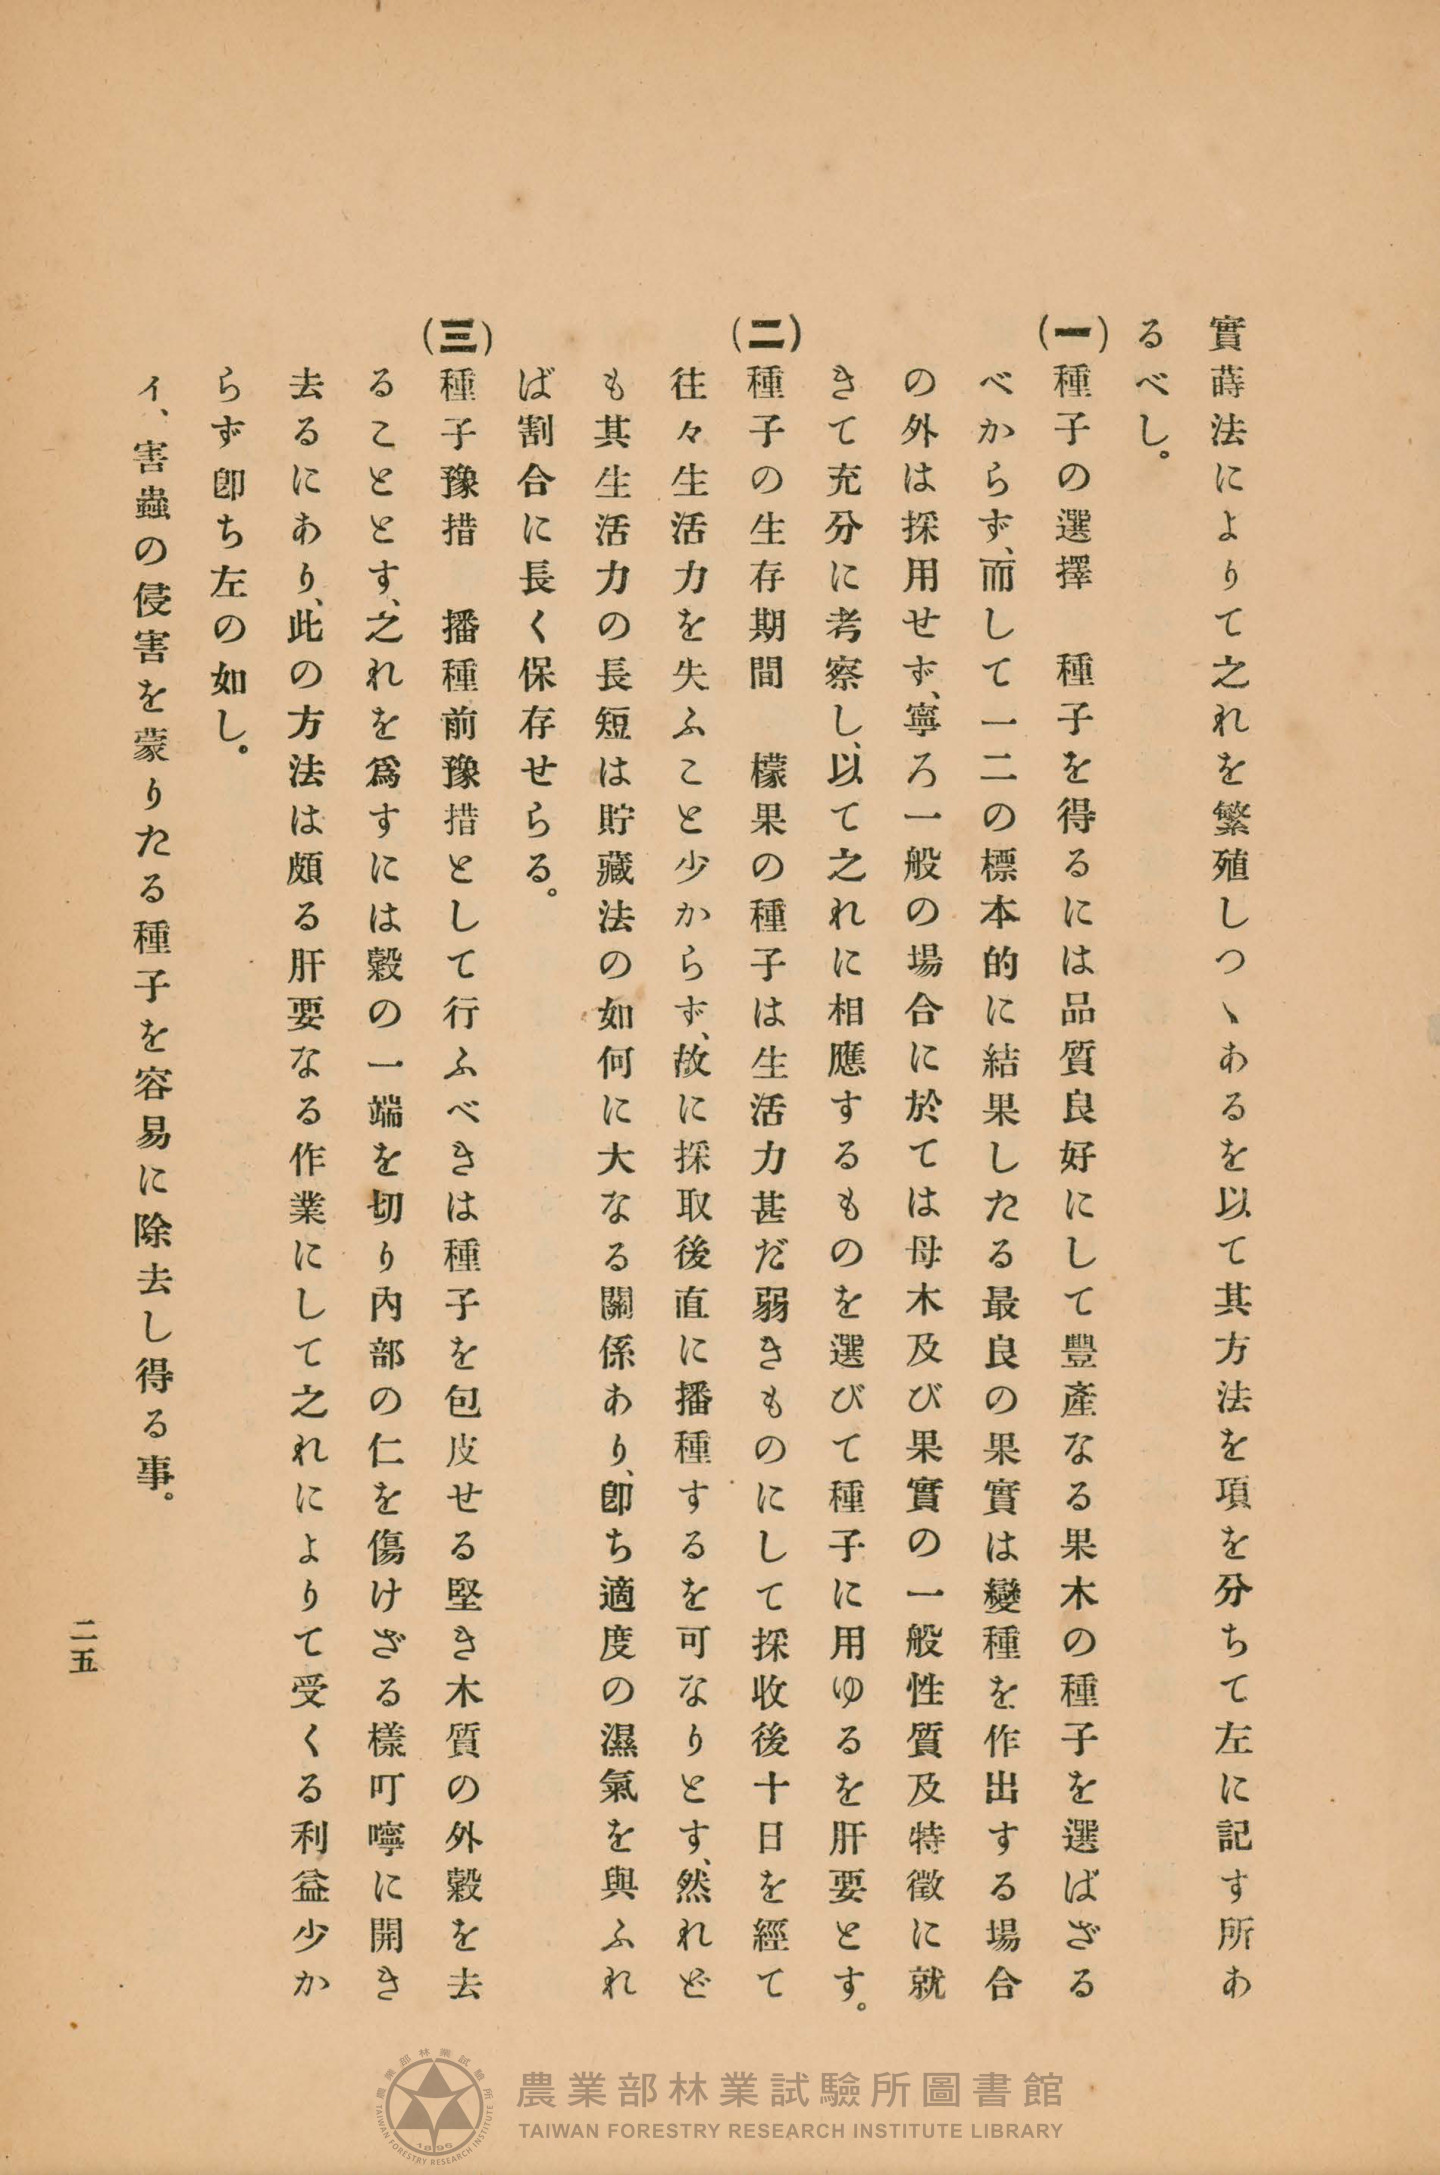 實蒔法によりて之れを繁殖しつヽあるを以て其方法を項を分ちて左に記す所あ
るべし。
(一)種子の選擇　種子を得るには品質良好にして豐產なる果木の種子を選ばざる
べからず、而して一二の標本的に結果したる最良の果實は變種を作出する場合
の外は採用せず、寧ろ一般の場合に於ては母木及び果實の一般性質及特徵に就
きて充分に考察し、以て之れに相應するものを選びて種子に用ゆるを肝要とす。
(二)種子の生存期間　檬果の種子は生活力甚だ弱きものにして採收後十日を經て
往々生活力を失ふこと少からず、故に採取後直に播種するを可なりとす、然れど
も其生活力の長短は貯藏法の如何に大なる關係あり、卽ち適度の濕氣を與ふれ
ば割合に長く保存せらる。
(三)種子豫措　播種前豫措として行ふべきは種子を包皮せる堅き木質の外穀を去
ることとす、之れを爲すには穀の一端を切り內部の仁を傷けざる樣叮嚀に開き
去るにあり、此の方法は頗る肝要なる作業にして之れによりて受くる利益少か
らず卽ち左の如し。
イ、害蟲の侵害を蒙りたる種子を容易に除去し得る事。
二五
農業部林業試驗所圖書館
TAIWAN FORESTRY RESEARCH INSTITUTE LIBRARY
農業部林業試驗所
TAIWAN FORESTRY RESEARCH INSTITUTE
1895